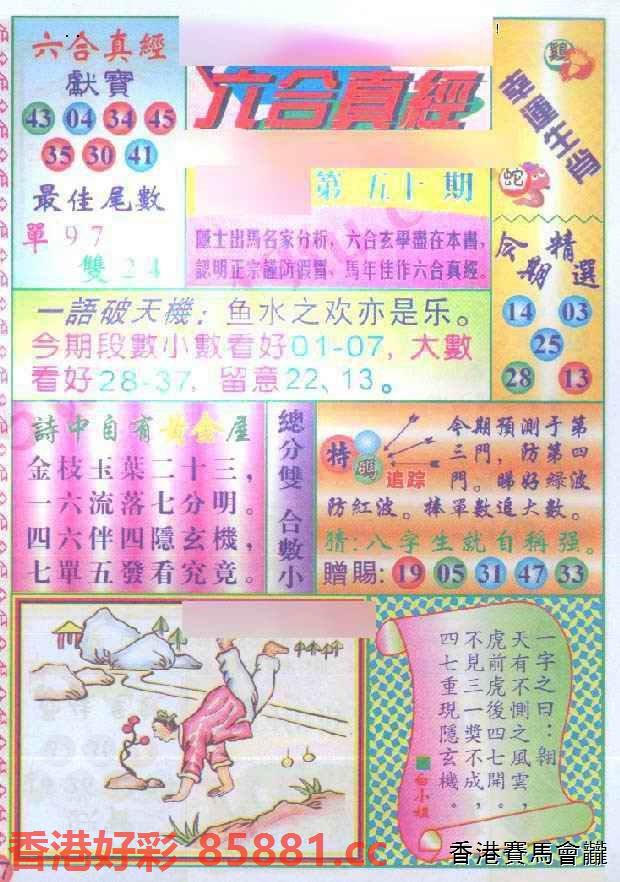 六合真經
獻寶
43 04 34 45
35 30 41
最佳尾數
單97
雙24
六合真經
第五十期
隱士出馬名家分析，六合玄學盡在本書，
認明正宗謹防假冒，馬年佳作六合真經。
雞
幸運生肖
蛇
今期精選
14 03
25
28 13
一語破天機：鱼水之欢亦是乐。
今期段數小數看好01-07，大數
看好28-37，留意22、13。
詩中自有黃金屋
金枝玉葉二十三，
一六流落七分明。
四六伴四隱玄機，
七單五發看究竟。
總分雙 合數小
特碼追踪
今期預測于第
三門，防第四
門。睇好绿波
防紅波。棒單數追大數。
猜：八字生就自稱强。
贈賜：19 05 31 47 33
一字之曰：翱
天有不惻之風雲，
虎前虎後四七開。
不見三一獎不成，
四七重現隱玄機。
白小姐
香港好彩 85881.cc
香港賽馬會